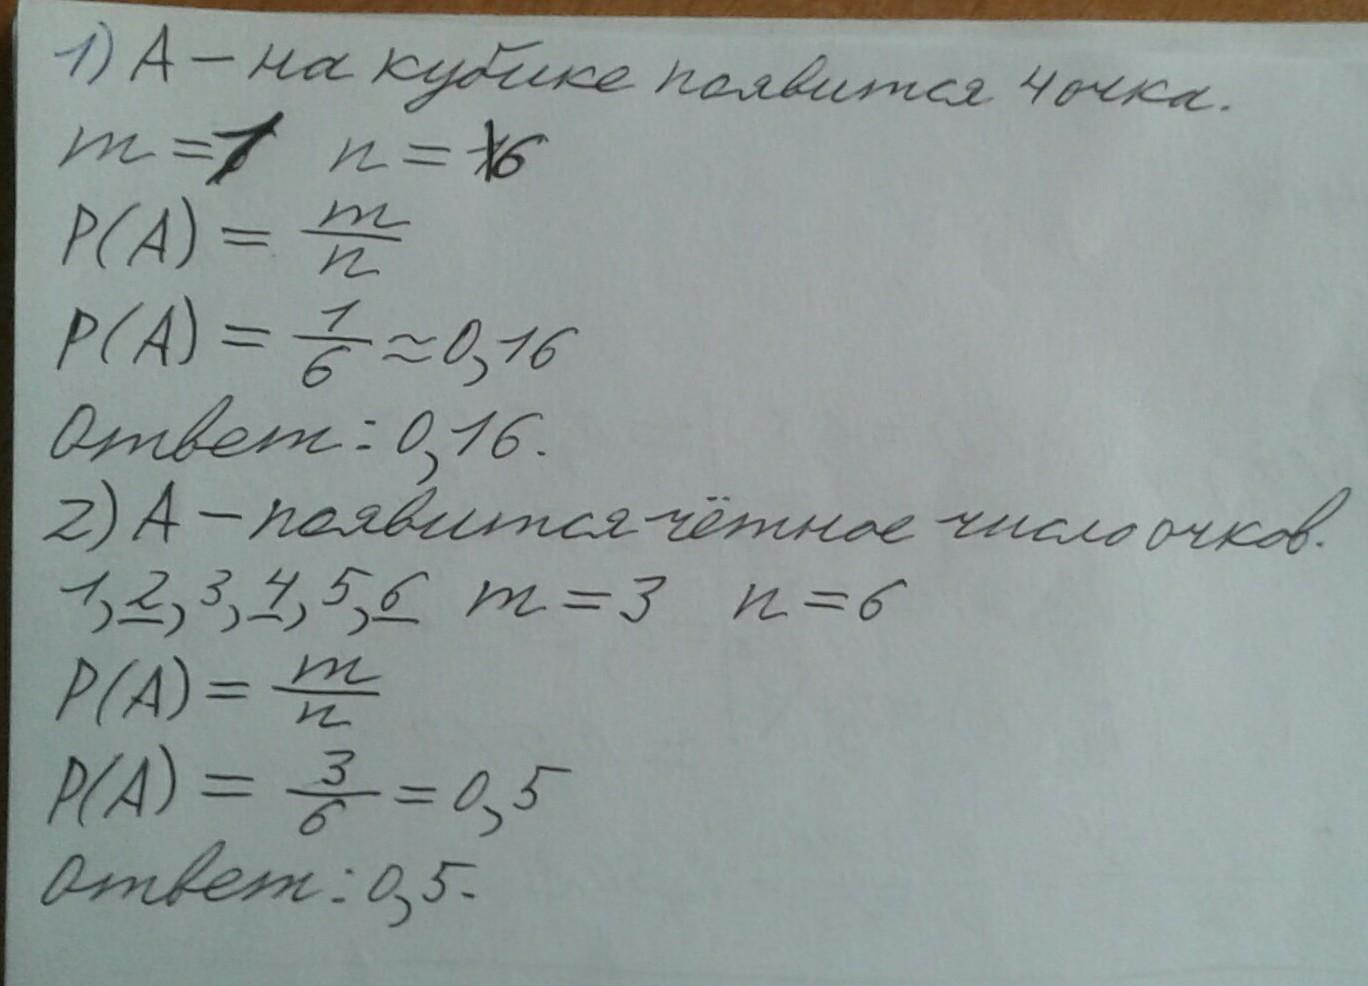 1) А – на кубике появится 4 очка.
m = 1 n = 6
P(A) = m/n
P(A) = 1/6 ≈ 0,16
Ответ: 0,16.
2) А – появится чётное число очков.
1, 2, 3, 4, 5, 6 m = 3 n = 6
P(A) = m/n
P(A) = 3/6 = 0,5
Ответ: 0,5.